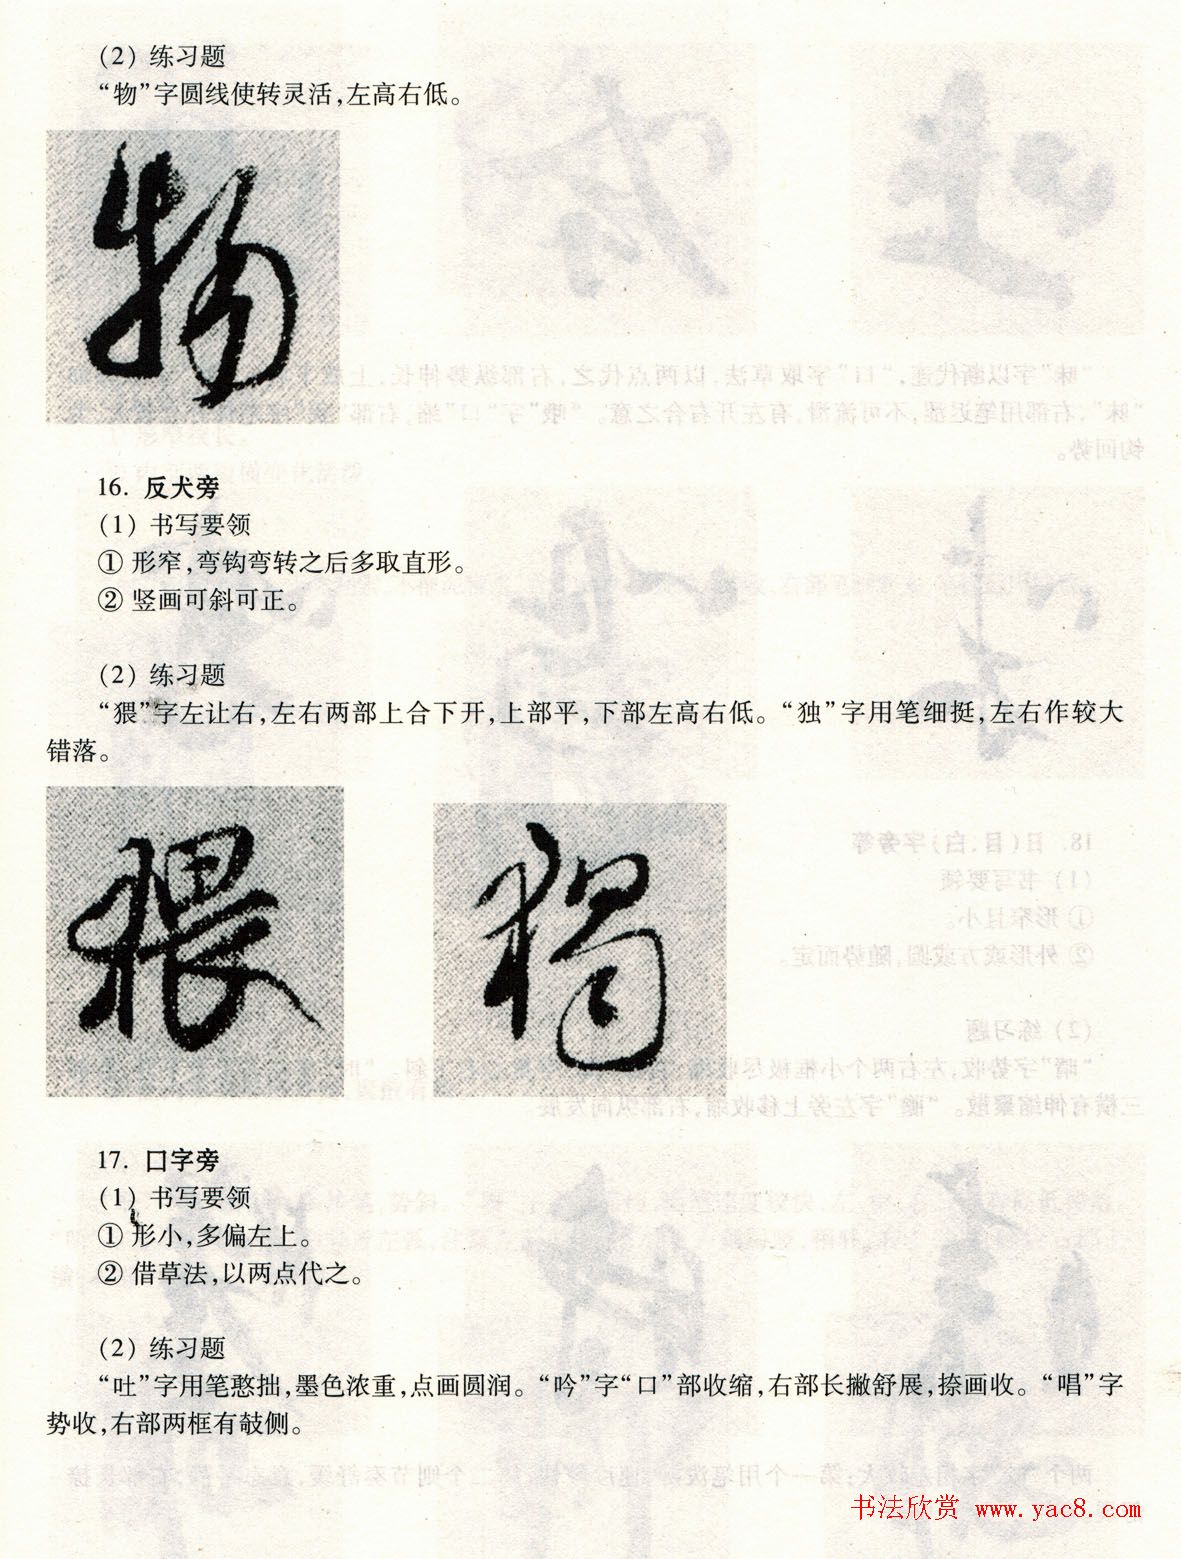 (2) 练习题
“物”字圆线使转灵活,左高右低。
物
16. 反犬旁
(1) 书写要领
① 形窄,弯钩弯转之后多取直形。
② 竖画可斜可正。
(2) 练习题
“猥”字左让右,左右两部上合下开,上部平,下部左高右低。“独”字用笔细挺,左右作较大
错落。
猥 獨
17. 口字旁
(1) 书写要领
① 形小,多偏左上。
② 借草法,以两点代之。
(2) 练习题
“吐”字用笔憨拙,墨色浓重,点画圆润。“吟”字“口”部收缩,右部长撇舒展,捺画收。“唱”字
势收,右部两框有敧侧。
书法欣赏 www.yac8.com